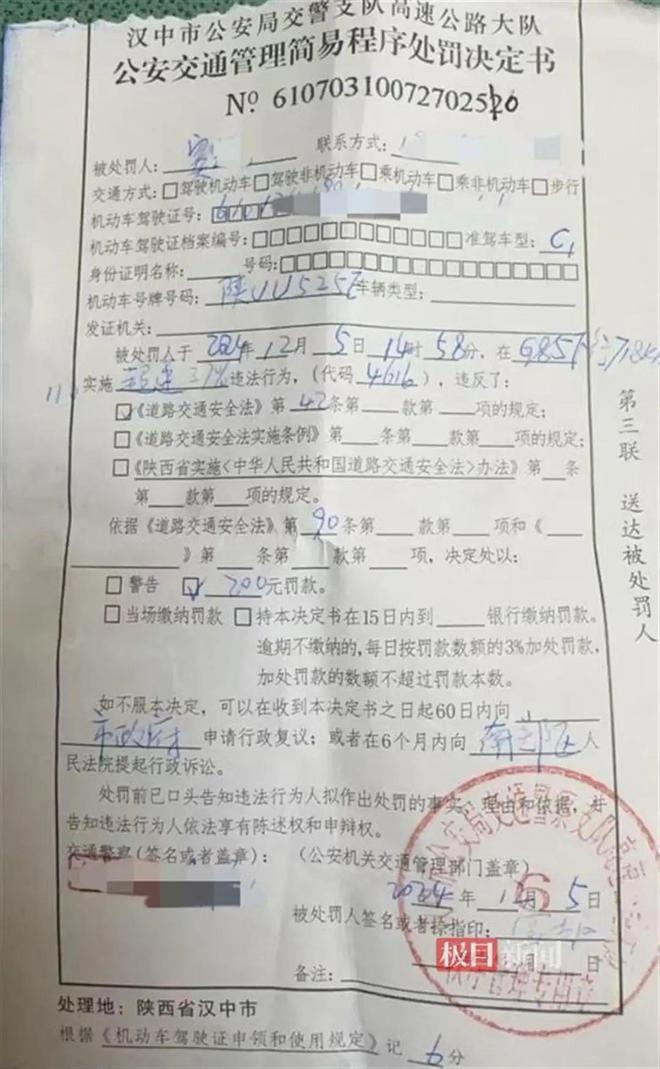 汉中市公安局交警支队高速公路大队
公安交通管理简易程序处罚决定书
№ 6107031007270252
被处罚人： 联系方式：
交通方式：□驾驶机动车□驾驶非机动车□乘机动车□乘非机动车□步行
机动车驾驶证号：
机动车驾驶证档案编号：□□□□□□□□□□□□准驾车型：C1
身份证明名称： 号码：□□□□□□□□□□□□□□□□□□
机动车号牌号码：陕UU525E车辆类型：
发证机关：
被处罚人于2024年12月5日14时58分，在G85下行
实施超速37%违法行为，(代码4616)，违反了：
☑《道路交通安全法》第42条第 款第 项的规定；
□《道路交通安全法实施条例》第 条第 款第 项的规定；
□《陕西省实施〈中华人民共和国道路交通安全法〉办法》第 条
第 款第 项的规定。
依据《道路交通安全法》第90条第 款第 项和《
》第 条第 款第 项，决定处以：
□ 警告 ☑ 200元罚款。
□ 当场缴纳罚款 □ 持本决定书在15日内到 银行缴纳罚款。
逾期不缴纳的，每日按罚款数额的3%加处罚款，
加处罚款的数额不超过罚款本数。
如不服本决定，可以在收到本决定书之日起60日内向
市政府 申请行政复议；或者在6个月内向 南郑区人
民法院提起行政诉讼。
处罚前已口头告知违法行为人拟作出处罚的事实、理由和依据，并
告知违法行为人依法享有陈述权和申辩权。
交通警察(签名或者盖章)： (公安机关交通管理部门盖章)
2024年12月5日
被处罚人签名或者捺指印：
月 日
备注：
处理地：陕西省汉中市
根据《机动车驾驶证申领和使用规定》记 6 分
第三联 送达被处罚人
极目新闻